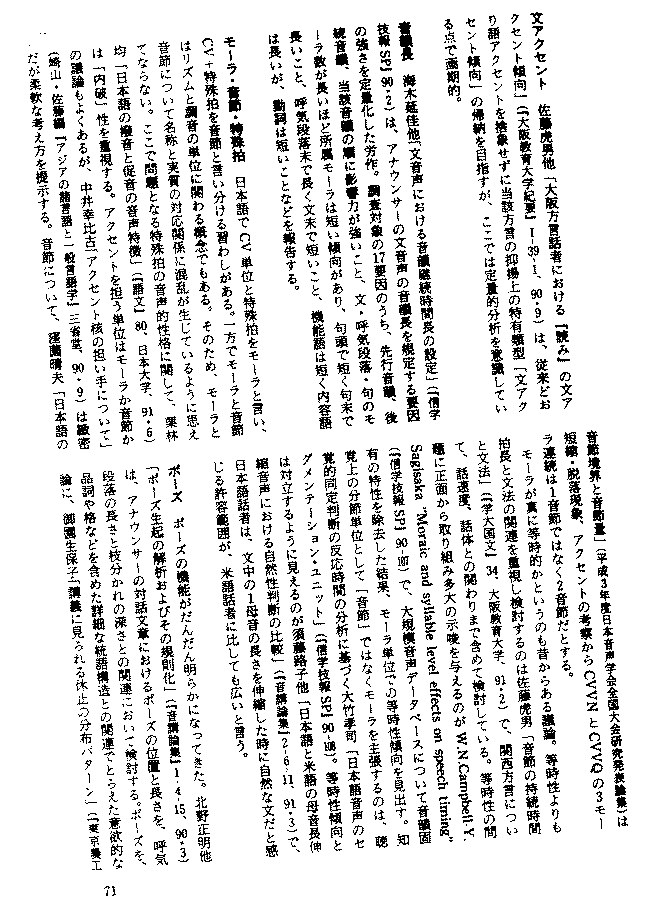 文アクセント　佐藤虎男他「大阪方言話者における『読み』の文ア
クセント傾向」（『大阪教育大学紀要』Ⅰ‐39‐1、90・9）は、従来どお
り語アクセントを捨象せずに当該方言の抑揚上の特有類型「文アク
セント傾向」の帰納を目指すが、ここでは定量的分析を意識してい
る点で画期的。
音韻長　海木延佳他「文音声における音韻継続時間長の設定」（『信学
技報』SP90‐2）は、アナウンサーの文音声の音韻長を規定する要因
の強さを定量化した労作。調査対象の17要因のうち、先行音韻、後
続音韻、当該音韻の順に影響力が強いこと、文・呼気段落・句のモ
ーラ数が長いほど所属モーラは短い傾向があり、句頭で短く句末で
長いこと、呼気段落末で長く文末で短いこと、機能語は短く内容語
は長いが、動詞は短いことなどを報告する。
モーラ・音節・特殊拍　日本語でCV単位と特殊拍をモーラと言い、
CV＋特殊拍を音節と言い分ける習わしがある。一方でモーラと音節
はリズムと調音の単位に関わる概念でもある。そのため、モーラと
音節について名称と実質の対応関係に混乱が生じているように思え
てならない。ここで問題となる特殊拍の音声的性格に関して、栗林
均「日本語の撥音と促音の音声特徴」（『語文』80、日本大学、91・6）
は「内破」性を重視する。アクセントを担う単位はモーラか音節か
の議論もよくあるが、中井幸比古「アクセント核の担い手について」
（崎山・佐藤編『アジアの諸言語と一般言語学』三省堂、90・9）は緻密
だが柔軟な考え方を提示する。音節について、窪薗晴夫「日本語の
音節境界と音節量」（『平成3年度日本音声学会全国大会研究発表論集』）は
短縮・脱落現象、アクセントの考察からCVVNとCVVQの3モー
ラ連続は1音節ではなく2音節だとする。
モーラが真に等時的かというのも昔からある議論。等時性よりも
拍長と文法の関連を重視し検討するのは佐藤虎男「音節の持続時間
と文法」（『学大国文』34、大阪教育大学、91・2）で、関西方言につい
て、話速度、話体との関わりまで含めて検討している。等時性の問
題に正面から取り組み多大の示唆を与えるのがW.N.Campbell・Y.
Sagisaka "Moraic and syllable level effects on speech timing"
（『信学技報』SP90‐107）で、大規模音声データベースについて音韻固
有の特性を除去した結果、モーラ単位での等時性傾向を見出す。知
覚上の分節単位として「音節」ではなくモーラを主張するのは、聴
覚的同定判断の反応時間の分析に基づく大竹孝司「日本語音声のセ
グメンテーション・ユニット」（『信学技報』SP90‐108）。等時性傾向と
は対立するように見えるのが須藤路子他「日本語と米語の母音長伸
縮音声における自然性判断の比較」（『音講論集』2‐6‐11、91・3）で、
日本語話者は、文中の1母音の長さを伸縮した時に自然な文だと感
じる許容範囲が、米語話者に比しても広いと言う。
ポーズ　ポーズの機能がだんだん明らかになってきた。北野正明他
「ポーズ生起の解析およびその規則化」（『音講論集』1‐4‐15、90・3）
は、アナウンサーの対話文章におけるポーズの位置と長さを、呼気
段落の長さと枝分かれの深さとの関連において検討する。ポーズを、
品詞や格などを含めた詳細な統語構造との関連でとらえた意欲的な
論に、御園生保子「講義に見られる休止の分布パターン」（『東京農工
71